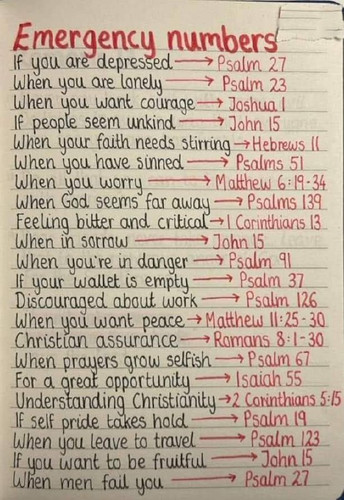 Emergency numbers
If you are depressed → Psalm 27
When you are lonely → Psalm 23
When you want courage → Joshua 1
If people seem unkind → John 15
When your faith needs stirring → Hebrews 11
When you have sinned → Psalms 51
When you worry → Matthew 6:19-34
When God seems far away → Psalms 139
Feeling bitter and critical → 1 Corinthians 13
When in sorrow → John 15
When you're in danger → Psalm 91
If your wallet is empty → Psalm 37
Discouraged about work → Psalm 126
When you want peace → Matthew 11:25-30
Christian assurance → Romans 8:1-30
When prayers grow selfish → Psalm 67
For a great opportunity → Isaiah 55
Understanding Christianity → 2 Corinthians 5:15
If self pride takes hold → Psalm 19
When you leave to travel → Psalm 123
If you want to be fruitful → John 15
When men fail you → Psalm 27